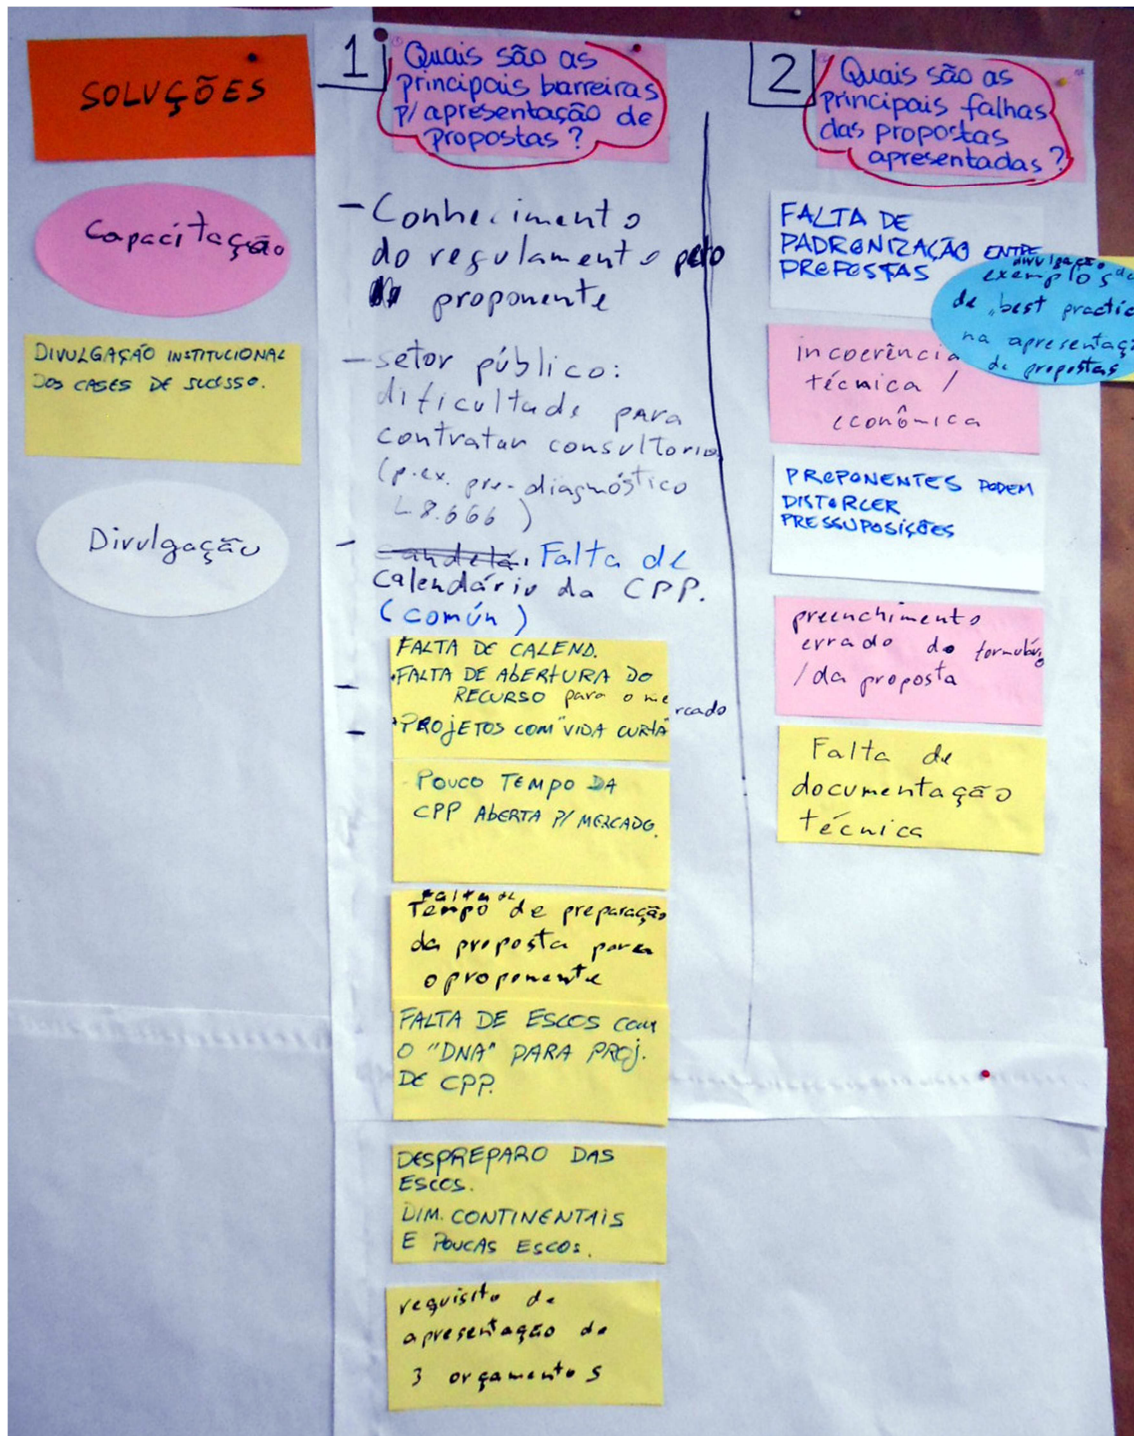 SOLUÇÕES
Capacitação
DIVULGAÇÃO INSTITUCIONAL
DOS CASES DE SUCESSO.
Divulgação
1
Quais são as
principais barreiras
p/ apresentação de
propostas?
- Conhecimento
do regulamento pelo
proponente
- setor público:
dificultade para
contratar consultoria
(p.ex. pre-diagnóstico
L8.666)
- Falta de
Calendário da CPP.
(común)
FALTA DE CALEND.
- FALTA DE ABERTURA DO
RECURSO para o mercado
- PROJETOS COM "VIDA CURTA"
POUCO TEMPO DA
CPP ABERTA P/ MERCADO.
Falta de
Tempo de preparação
da proposta para
o proponente
FALTA DE ESCOS COM
O "DNA" PARA PROJ.
DE CPP.
DESPREPARO DAS
ESCOS.
DIM. CONTINENTAIS
E POUCAS ESCOS.
requisito de
apresentação de
3 orçamentos
2
Quais são as
principais falhas
das propostas
apresentadas?
FALTA DE
PADRONIZAÇÃO ENTRE
PROPOSTAS
divulgação de
exemplos
de "best practic
na apresentaç
de propostas
incoerência
técnica /
econômica
PROPONENTES PODEM
DISTORCER
PRESSUPOSIÇÕES
preenchimento
errado do formulário
/ da proposta
Falta de
documentação
técnica